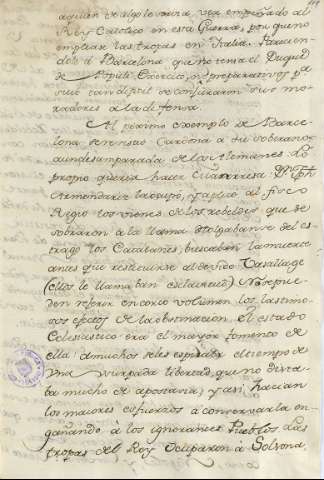 aquien de algo le sirva ver empeñado al
Rey Catolico en esta Guerra, porque no
emplease las tropas en Italia. Haviendo
dò à Barcelona, que no temia el Duque
de Populi Exercito, ni preparativos pa
sus moradores à la defensa.
El pesimo exemplo de Barce-
lona se resistió Cardona à su soberano,
aun desamparada de los Alemanes. Lo
propio queria hacer
Armendariz lo supo, y aplicó al fisco
Regio los vienes de los rebeldes, que se
sobraron à la llama. Holgabanse del es
trago los Catalanes, buscaban la muerte
antes que restituirse al devido Vasallage
(ellos le llamaban esclavitud) No se pue-
den referir en corto volumen los lastimo
sos efectos de la obstinacion. el estado
Eclesiastico era el mayor fomento de
ella, à muchos se les espiraba el tiempo de
una usurpada libertad, que no dista
ba mucho de apostasia, y asi hacian
los maiores esfuerzos à conservarla en
gañando à los ignorantes Pueblos. Las
tropas del Rey Ocuparon à Solsona,